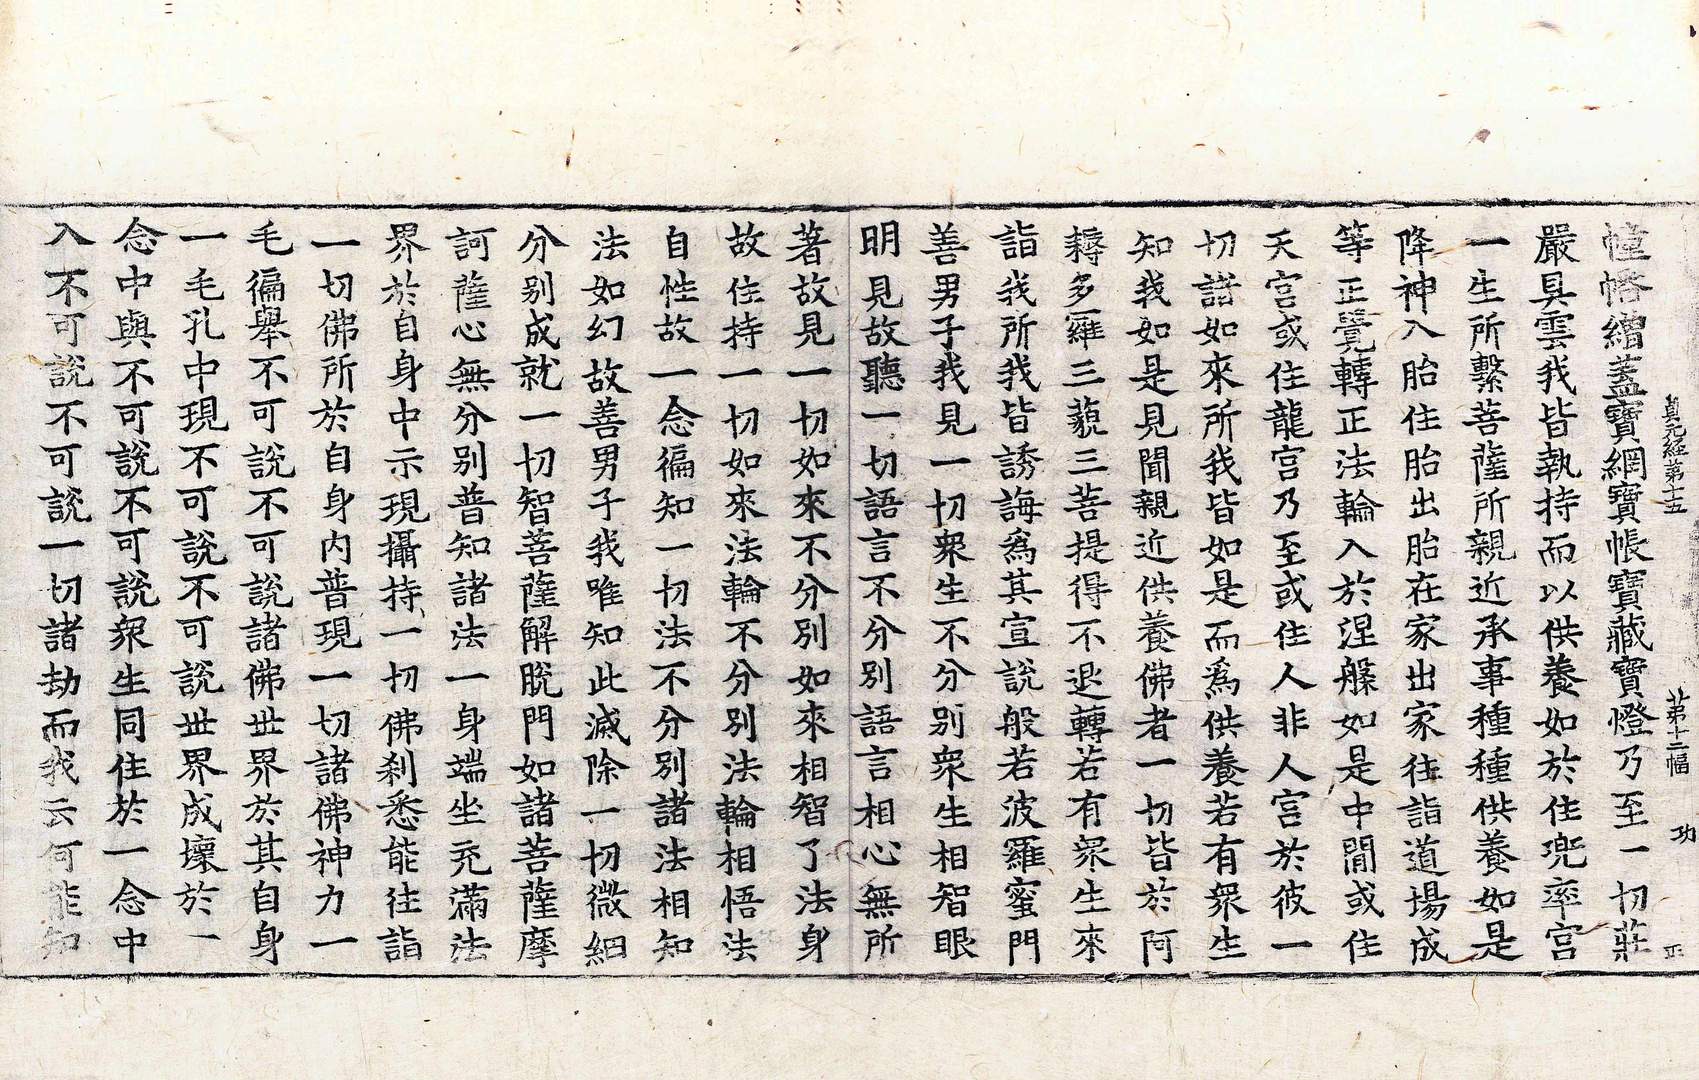 貞元經第十五 第十二幅 功 正
幢幡繒蓋寶網寶帳寶藏寶燈乃至一切莊
嚴具雲我皆執持而以供養如於住兜率宮
一生所繫菩薩所親近承事種種供養如是
降神入胎住胎出胎在家出家往詣道場成
等正覺轉正法輪入於涅槃如是中閒或住
天宮或住龍宮乃至或住人非人宮於彼一
切諸如來所我皆如是而爲供養若有衆生
知我如是見聞親近供養佛者一切皆於阿
耨多羅三藐三菩提得不退轉若有衆生來
詣我所我皆誘誨爲其宣說般若波羅蜜門
善男子我見一切衆生不分別衆生相智眼
明見故聽一切語言不分別語言相心無所
著故見一切如來不分別如來相智了法身
故住持一切如來法輪不分別法輪相悟法
自性故一念徧知一切法不分別諸法相知
法如幻故善男子我唯知此滅除一切微細
分別成就一切智菩薩解脫門如諸菩薩摩
訶薩心無分別普知諸法一身端坐充滿法
界於自身中示現攝持一切佛刹悉能往詣
一切佛所於自身內普現一切諸佛神力一
毛徧舉不可說不可說諸佛世界於其自身
一毛孔中現不可說不可說世界成壞於一
念中與不可說不可說衆生同住於一念中
入不可說不可說一切諸劫而我云何能知